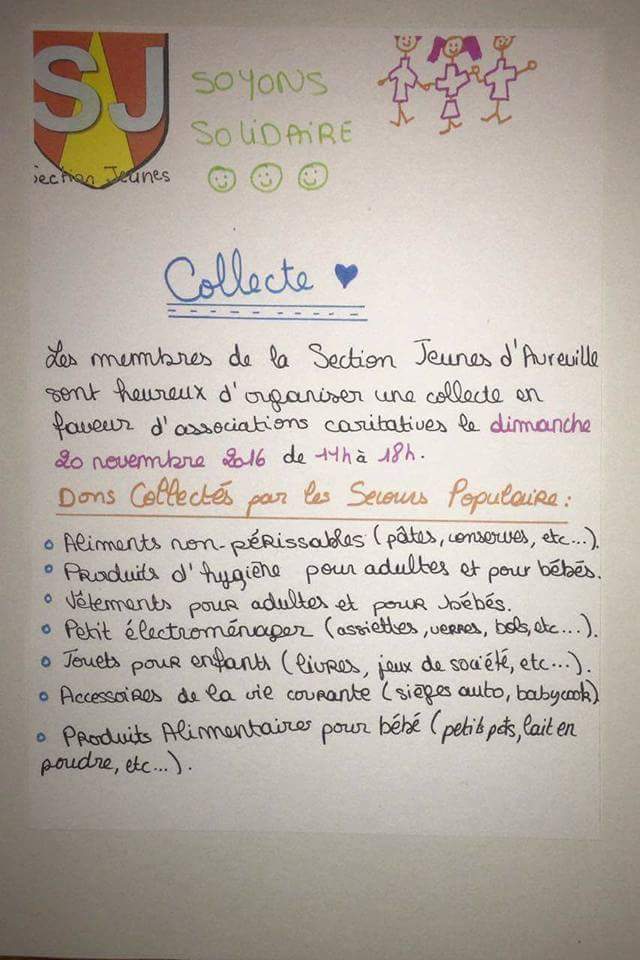 SJ
Section Jeunes
SOYONS
SOLiDAiRE
Collecte
Les membres de la Section Jeunes d'Aureville
sont heureux d'organiser une collecte en
faveur d'associations caritatives le dimanche
20 novembre 2016 de 14h à 18h.
Dons Collectés par les Secours Populaire :
Aliments non-périssables (pâtes, conserves, etc...).
Produits d'hygiène pour adultes et pour bébés.
Vêtements pour adultes et pour bébés.
Petit électroménager (assiettes, verres, bols, etc...).
Jouets pour enfants (livres, jeux de société, etc...).
Accessoires de la vie courante (sièges auto, babycook)
Produits Alimentaires pour bébé (petits pots, lait en
poudre, etc...).